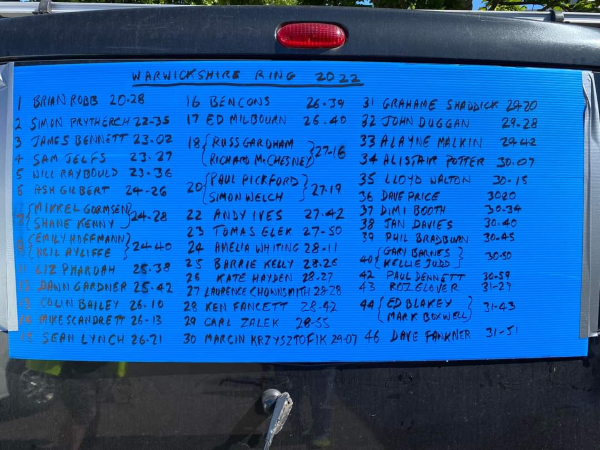 WARWICKSHIRE RING 2022
1 BRIAN ROBB 20-28
2 SIMON PRYTHERCH 22-35
3 JAMES BENNETT 23-02
4 SAM JELFS 23-27
5 WILL RAYBOULD 23-36
6 ASH GILBERT 24-26
MIKKEL GORMSEN
SHANE KENNY 24-28
EMILY HOFFMANN
NEIL AYLIFFE 24-40
LIZ PHAROAH 25-38
DAWN GARDNER 25-42
COLIN BAILEY 26-10
MIKE SCANDRETT 26-13
SEAN LYNCH 26-21
16 BEN CONS 26-39
17 ED MILBOURN 26-40
18 RUSS GARDHAM
RICHARD McCHESNEY 27-16
20 PAUL PICKFORD
SIMON WELCH 27-19
22 ANDY IVES 27-42
23 TOMAS ELEK 27-50
24 AMELIA WHITING 28-11
25 BARRIE KELLY 28-26
26 KATE HAYDEN 28-27
27 LAURENCE CHOWNSMITH 28-28
28 KEN FANCETT 28-42
29 CARL ZALEK 28-55
30 MARCIN KRZYSZTOFIK 29-07
31 GRAHAME SHADDICK 29-20
32 JOHN DUGGAN 29-28
33 ALAYNE MALKIN 29-42
34 ALISTAIR POTTER 30-07
35 LLOYD WALTON 30-15
36 DAVE PRICE 3020
37 DIMI BOOTH 30-34
38 JAN DAVIES 30-40
39 PHIL BRADBURN 30-45
40 GARY BARNES
KELLIE JUDD 30-50
42 PAUL BENNETT 30-59
43 ROZ GLOVER 31-27
44 ED BLAKEY
MARK BOXWELL 31-43
46 DAVE FAWKNER 31-51